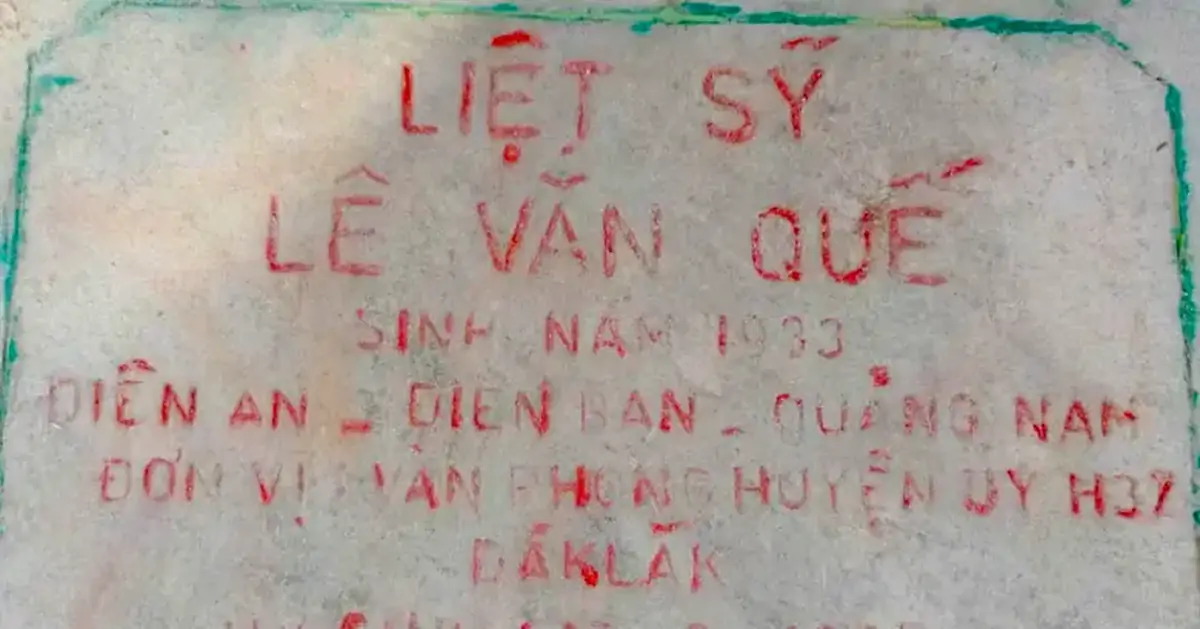 LIỆT SỸ
LÊ VĂN QUẾ
SINH NĂM 1933
ĐIỆN AN _ ĐIỆN BÀN _ QUẢNG NAM
ĐƠN VỊ: VĂN PHÒNG HUYỆN ỦY H37
ĐẮKLẮK